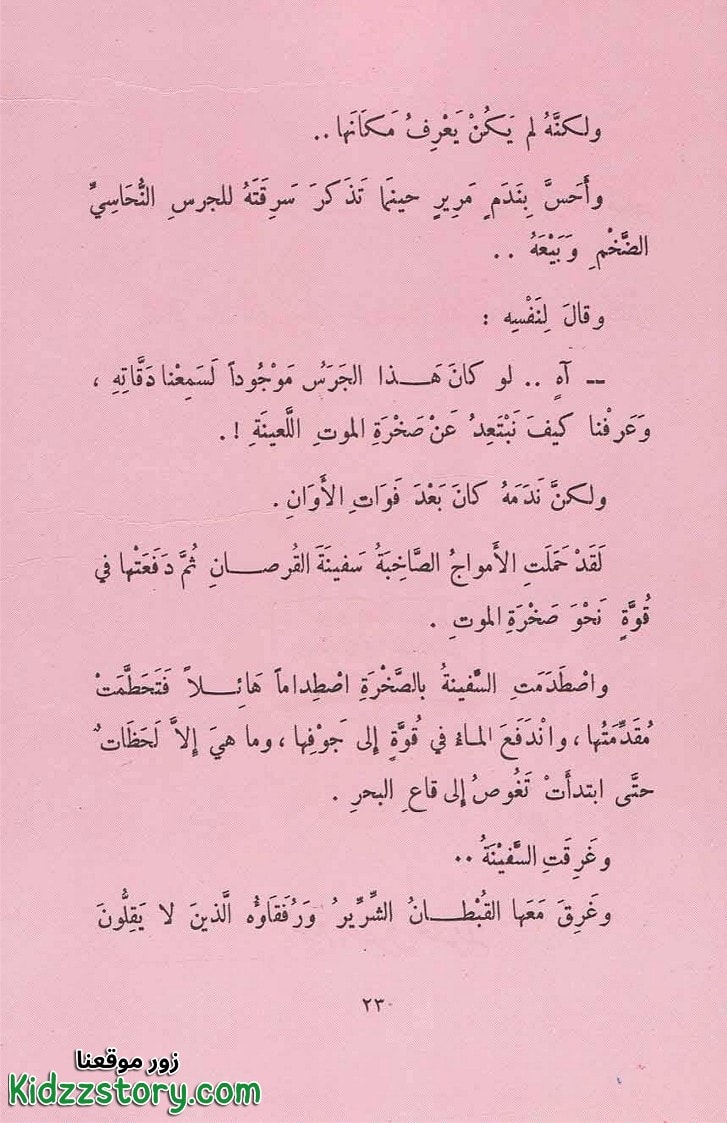 ولكنَّهُ لم يَكُنْ يَعْرِفُ مَكَانَها ..
وأَحَسَّ بِنَدَمٍ مَرِيرٍ حينَما تَذَكرَ سَرِقَتَهُ للجرسِ النُّحَاسِيِّ
الضَّخْمِ وَبَيْعَهُ ..
وقالَ لِنَفْسِه :
-- آهٍ .. لو كانَ هَــذا الجَرَسُ مَوْجُوداً لَسَمِعْنا دَقَّاتِهِ ،
وَعَرفْنا كيفَ نَبْتَعِدُ عَنْ صَخْرَةِ الموتِ اللَّعينَةِ ! .
ولكنَّ نَدَمَهُ كانَ بَعْدَ فَوَاتِ الأَوَانِ .
لَقَدْ حَمَلَتِ الأَمواجُ الصَّاخِبَةُ سَفينَةَ القُرصــانِ ثُمَّ دَفَعَتْها في
قُوَّةٍ نَحْوَ صَخْرَةِ الموتِ .
واصْطَدَمَتِ السَّفينةُ بالصَّخْرَةِ اصْطِداماً هَائِــلاً فَتَحَطَّمَتْ
مُقَدِّمَتُها ، وانْدَفَعَ الماءُ في قُوَّةٍ إلى جَوْفِها ، وما هيَ إلاَّ لَحَظَاتٌ
حتَّى ابتدأَتْ تَغُوصُ إلى قاعِ البحرِ .
وغَرِقَتِ السَّفِيْنَةُ ..
وغَرِقَ مَعَها القُبْطــانُ الشِّرِّيرُ وَرُفَقَاؤُه الَّذينَ لا يَقِلُّونَ
٢٣
زور موقعنا
Kidzzstory.com